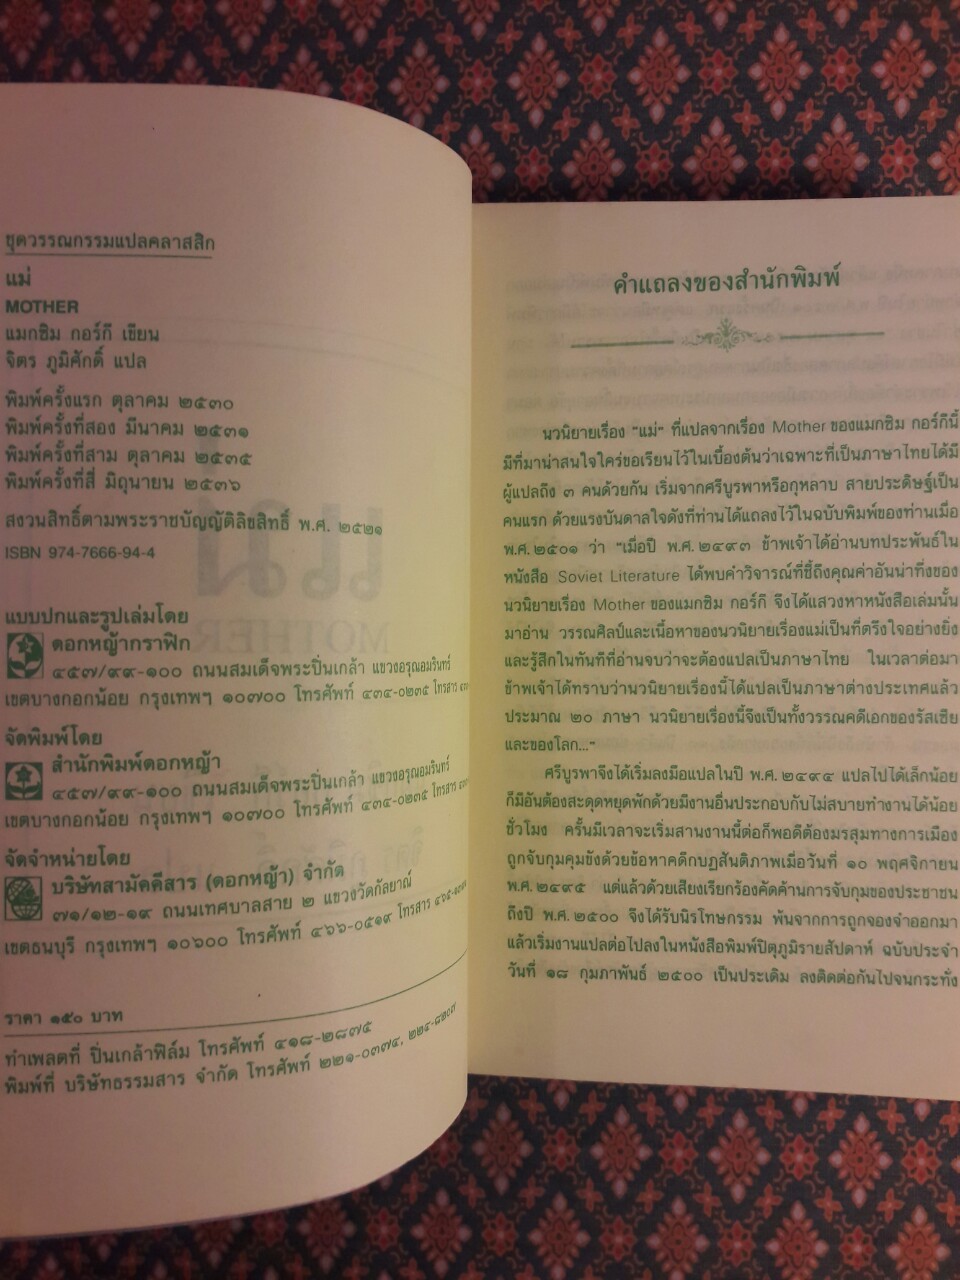 ชุดวรรณกรรมแปลคลาสสิก
แม่
MOTHER
แมกซิม กอร์กี เขียน
จิตร ภูมิศักดิ์ แปล
พิมพ์ครั้งแรก ตุลาคม ๒๕๓๐
พิมพ์ครั้งที่สอง มีนาคม ๒๕๓๑
พิมพ์ครั้งที่สาม ตุลาคม ๒๕๓๕
พิมพ์ครั้งที่สี่ มิถุนายน ๒๕๓๖
สงวนสิทธิ์ตามพระราชบัญญัติลิขสิทธิ์ พ.ศ. ๒๕๒๑
ISBN 974-7666-94-4
แบบปกและรูปเล่มโดย
ดอกหญ้ากราฟิก
๔๕๗/๙๙-๑๐๐ ถนนสมเด็จพระปิ่นเกล้า แขวงอรุณอมรินทร์
เขตบางกอกน้อย กรุงเทพฯ ๑๐๗๐๐ โทรศัพท์ ๔๓๔-๐๒๓๕ โทรสาร
จัดพิมพ์โดย
สำนักพิมพ์ดอกหญ้า
๔๕๗/๙๙-๑๐๐ ถนนสมเด็จพระปิ่นเกล้า แขวงอรุณอมรินทร์
เขตบางกอกน้อย กรุงเทพฯ ๑๐๗๐๐ โทรศัพท์ ๔๓๔-๐๒๓๕ โทรสาร
จัดจำหน่ายโดย
บริษัทสามัคคีสาร (ดอกหญ้า) จำกัด
๗๑/๑๒-๑๙ ถนนเทศบาลสาย ๒ แขวงวัดกัลยาณ์
เขตธนบุรี กรุงเทพฯ ๑๐๖๐๐ โทรศัพท์ ๔๖๖-๐๕๑๙ โทรสาร
ราคา ๑๕๐ บาท
ทำเพลตที่ ปิ่นเกล้าฟิล์ม โทรศัพท์ ๔๑๘-๒๘๗๕
พิมพ์ที่ บริษัทธรรมสาร จำกัด โทรศัพท์ ๒๒๑-๐๓๗๔,
คำแถลงของสำนักพิมพ์
นวนิยายเรื่อง “แม่” ที่แปลจากเรื่อง Mother ของแมกซิม กอร์กีนี้
มีที่มาน่าสนใจใคร่ขอเรียนไว้ในเบื้องต้นว่าเฉพาะที่เป็นภาษาไทยได้มี
ผู้แปลถึง ๓ คนด้วยกัน เริ่มจากศรีบูรพาหรือกุหลาบ สายประดิษฐ์เป็น
คนแรก ด้วยแรงบันดาลใจดังที่ท่านได้แถลงไว้ในฉบับพิมพ์ของท่านเมื่อ
พ.ศ. ๒๕๐๑ ว่า “เมื่อปี พ.ศ. ๒๔๙๓ ข้าพเจ้าได้อ่านบทประพันธ์ใน
หนังสือ Soviet Literature ได้พบคำวิจารณ์ที่ชี้ถึงคุณค่าอันน่าทึ่งของ
นวนิยายเรื่อง Mother ของแมกซิม กอร์กี จึงได้แสวงหาหนังสือเล่มนั้น
มาอ่าน วรรณศิลป์และเนื้อหาของนวนิยายเรื่องแม่เป็นที่ตรึงใจอย่างยิ่ง
และรู้สึกในทันทีที่อ่านจบว่าจะต้องแปลเป็นภาษาไทย ในเวลาต่อมา
ข้าพเจ้าได้ทราบว่านวนิยายเรื่องนี้ได้แปลเป็นภาษาต่างประเทศแล้ว
ประมาณ ๒๐ ภาษา นวนิยายเรื่องนี้จึงเป็นทั้งวรรณคดีเอกของรัสเซีย
และของโลก...”
ศรีบูรพาจึงได้เริ่มลงมือแปลในปี พ.ศ. ๒๔๙๔ แปลไปได้เล็กน้อย
ก็มีอันต้องสะดุดหยุดพักด้วยมีงานอื่นประกอบกับไม่สบายทำงานได้น้อย
ชั่วโมง ครั้นมีเวลาจะเริ่มสานงานนี้ต่อก็พอดีต้องมรสุมทางการเมือง
ถูกจับกุมคุมขังด้วยข้อหาคดีกบฏสันติภาพเมื่อวันที่ ๑๐ พฤศจิกายน
พ.ศ. ๒๔๙๕ แต่แล้วด้วยเสียงเรียกร้องคัดค้านการจับกุมของประชาชน
ถึงปี พ.ศ. ๒๕๐๐ จึงได้รับนิรโทษกรรม พ้นจากการถูกจองจำออกมา
แล้วเริ่มงานแปลต่อไปลงในหนังสือพิมพ์ปิตุภูมิรายสัปดาห์ ฉบับประจำ
วันที่ ๑๘ กุมภาพันธ์ ๒๕๐๐ เป็นประเดิม ลงติดต่อกันไปจนกระทั่ง